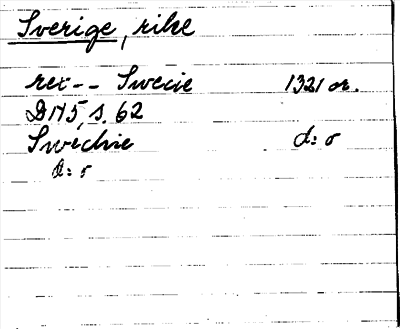 Sverige, rike
rex -- Swecie 1321 or.
DN5, s. 62
Swechie d:o
d:o